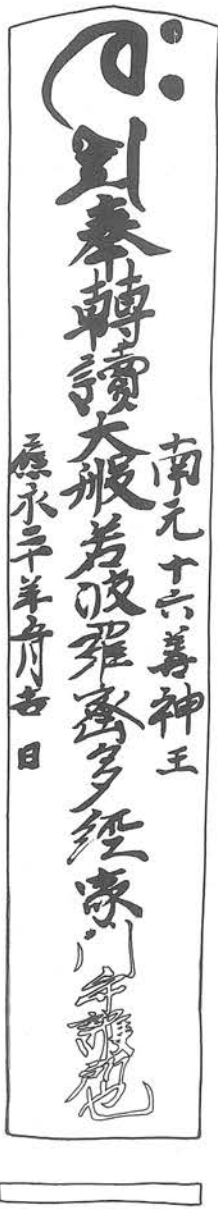 南无十六善神王
奉轉讀大般若波羅蜜多經家門守護所也
應永二十年五月吉日